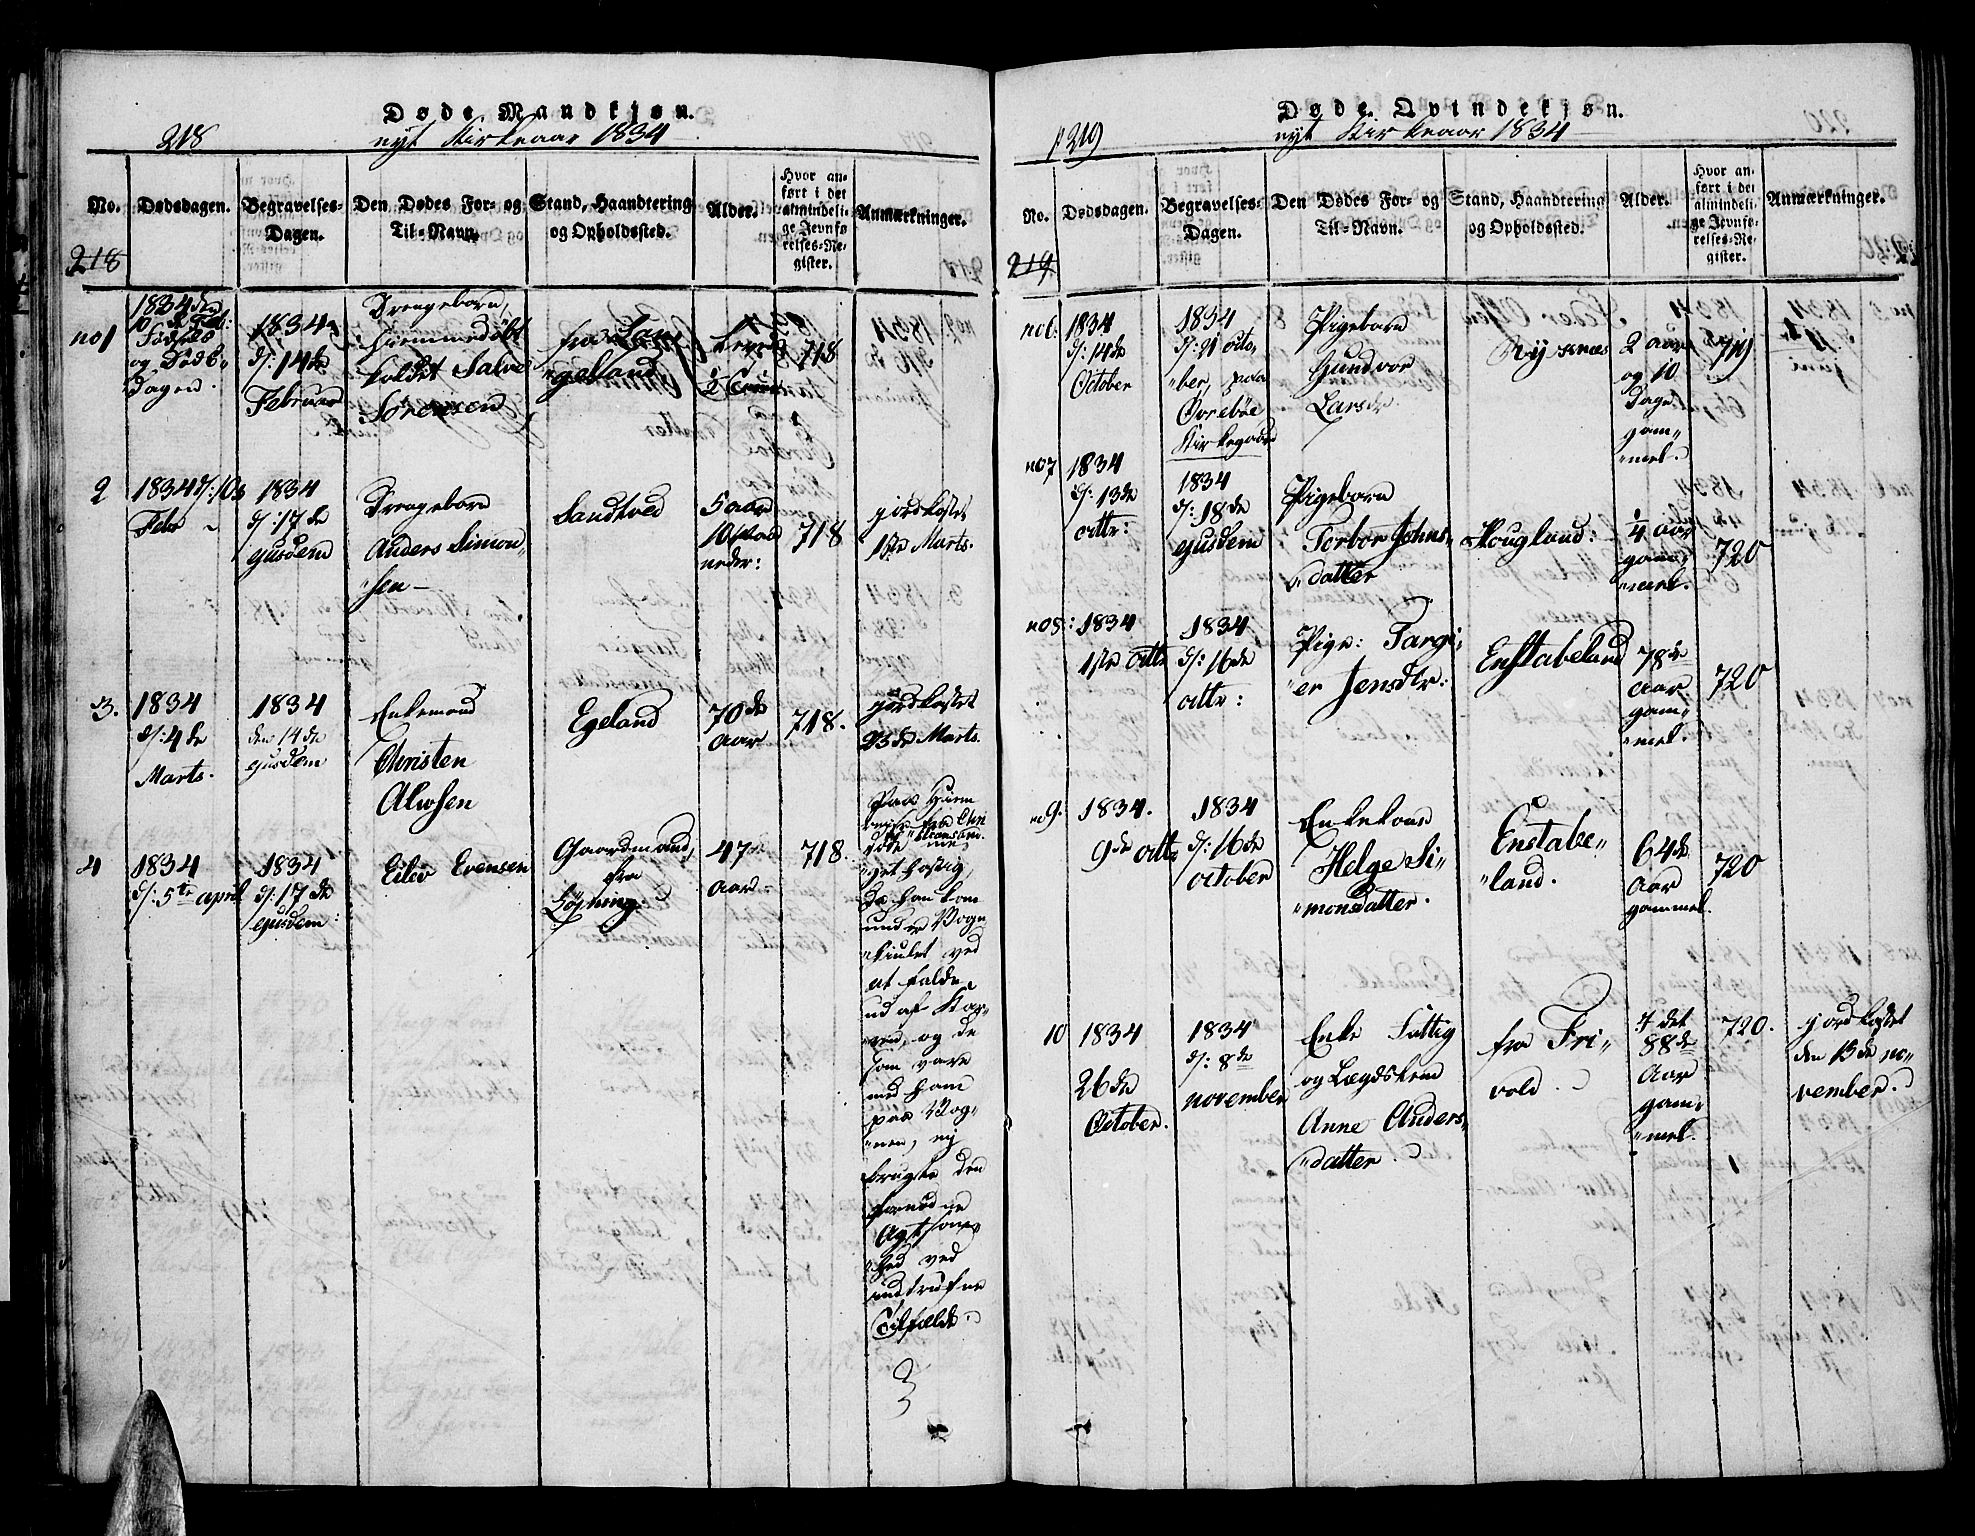 Døde Mandkjøn.
218
nyt Kirkeaar 1834
No.
Dødsdagen.
Begravelses-
Dagen.
Den Dødes For- og
Til-Navn.
Stand, Haandtering
og Opholdssted.
Alder.
Hvor an-
ført i det
almindeli-
ge Jevnfø-
relses-Re-
gister.
Anmærkninger.
218
no 1
1834 den
10 d. Feb:
Fødsels
og Døds-
dagen.
1834
d/: 14de
Februar
Drengebarn,
hiemmedøbt
kaldet Salve
Sørensen
fra Lan-
"geland
718
2
1834 d/: 10de
Febr
1834
d/: 17de
ejusdem
Drengebarn
Anders Simon-
"sen
Sandtved
5 aar
10 Maa
neder:
718
jordkastet
1ste Marts.
3.
1834
d/: 4de
Marts.
1834
den 14de
ejusdem
Enkemand
Christen
Alwsen
Egeland
70de
Aar
718.
jordkastet
23de Marts.
4
1834
d/: 5te april
1834
d/: 17de
ejusdem:
Eilev Evensen
Gaardmand,
fra
Løyning.
47
Aar
718.
Paa Hiem
reise fra Chri
"stiansand
døde me-
"get hastig,
da han kom
under Vogn
"hiulet ved
at falde
ud af Kar-
"ren, og de
som vare
med ham
paa Vog-
"nen, ej
brugte den
fornødne
Agtsom
"hed ved
indtrufne
Tilfælde.
Døde Qvindekjøn.
219
nyt Kirkeaar 1834
No.
Dødsdagen.
Begravelses-
Dagen.
Den Dødes For- og
Til-Navn.
Stand, Haandtering
og Opholdssted.
Alder.
Hvor an-
ført i det
almindeli-
ge Jevnfø-
relses-Re-
gister.
Anmærkninger.
219
no 6:
1834
d/: 14de
October
1834
d/: 21 octo,
"ber, paa
Øvrebøe
Kirkegaard
Pigebarn
Gundvor
Larsdr.
Ryssnes
2 aar
og 10
Dage
gam-
"mel.
719
no 7
1834
d/: 13de
octbr:
1834
d/: 18de
ejusdem
Pigebarn
Torbor Johns,
"datter
Hougland:
1/4 aar
gam-
"mel.
720
no 8:
1834
1ste octbr
1834
d/: 16de
octbr:
Pige: Targi,
"er Jensdtr:
Enstabeland
78de
Aar
gam-
"mel.
720
no 9.
1834.
9de octbr
1834
d/: 16de
october
Enkekone
Helge Si-
"monsdatter.
Enstabe-
"land.
64de
Aar
gammel.
720
10
1834
26de
October.
1834
d/: 8de
november
Enke Fattig
og Lægdslem
Anne Anders,
"datter.
fra Fri-
vold.
i det
88de
Aar
gam-
"mel.
720.
jordkastet
den 15de no-
vember.